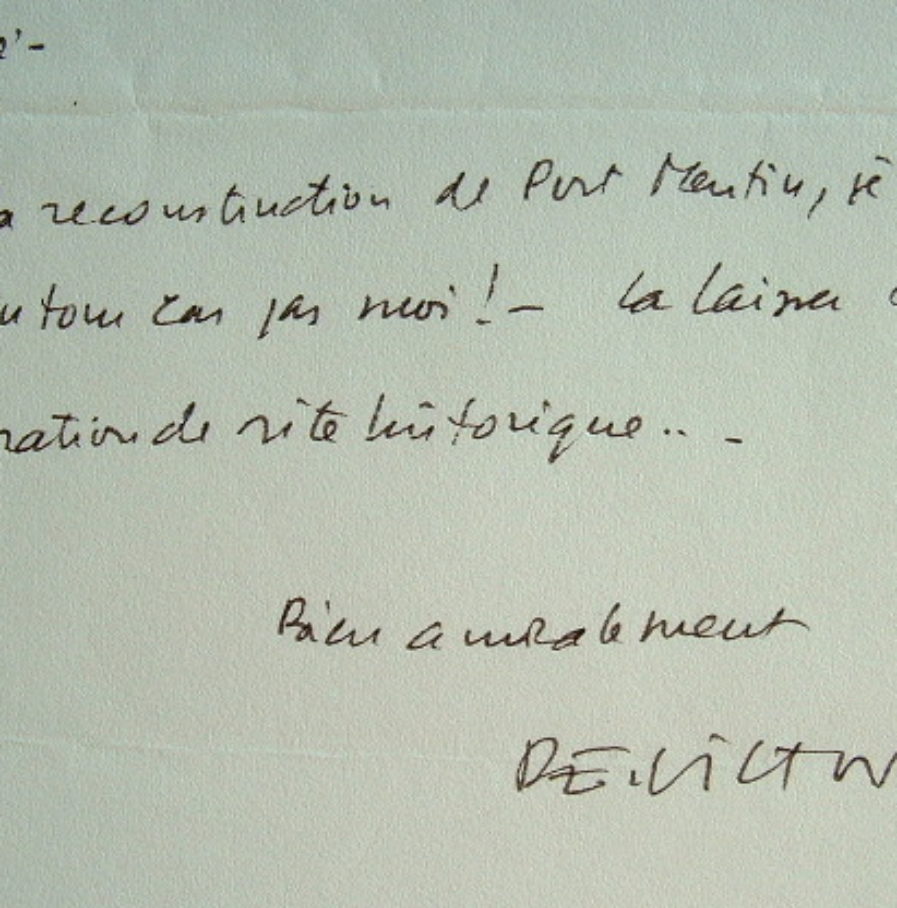 a reconstruction de Port Martin, je
en tous cas pas moi ! - La laisser
ration de site historique.. -
Bien amicalement
P.E. VICTOR